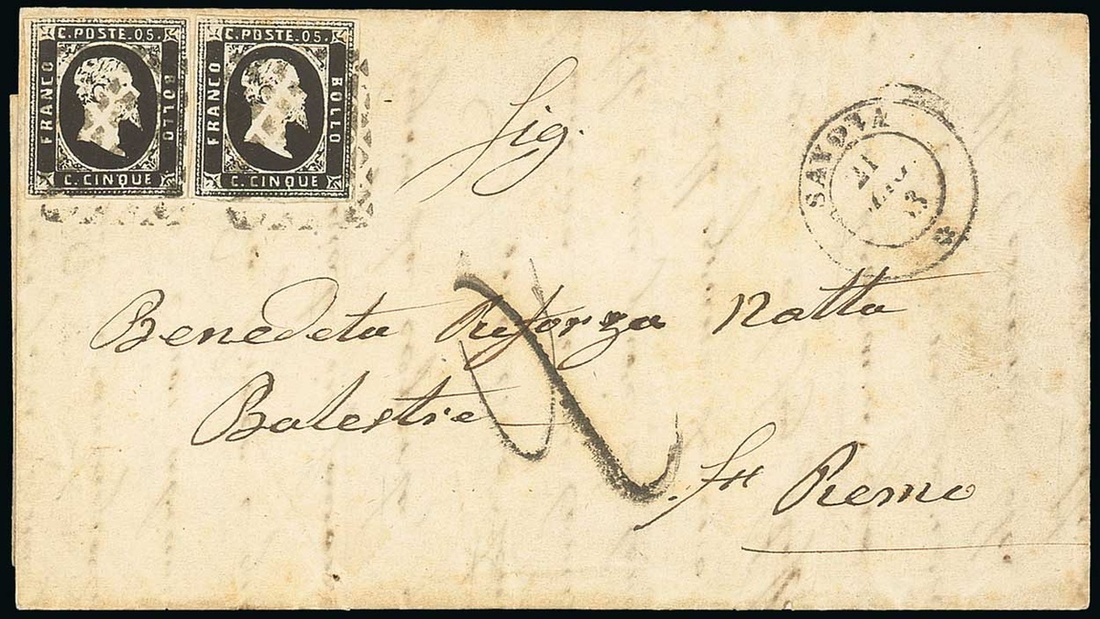 C. POSTE. 05.
FRANCO
BOLLO
C. CINQUE
C. POSTE. 05.
FRANCO
BOLLO
C. CINQUE
SAVONA
21
Sig.
Benedeta Natta
Balestre
Remo